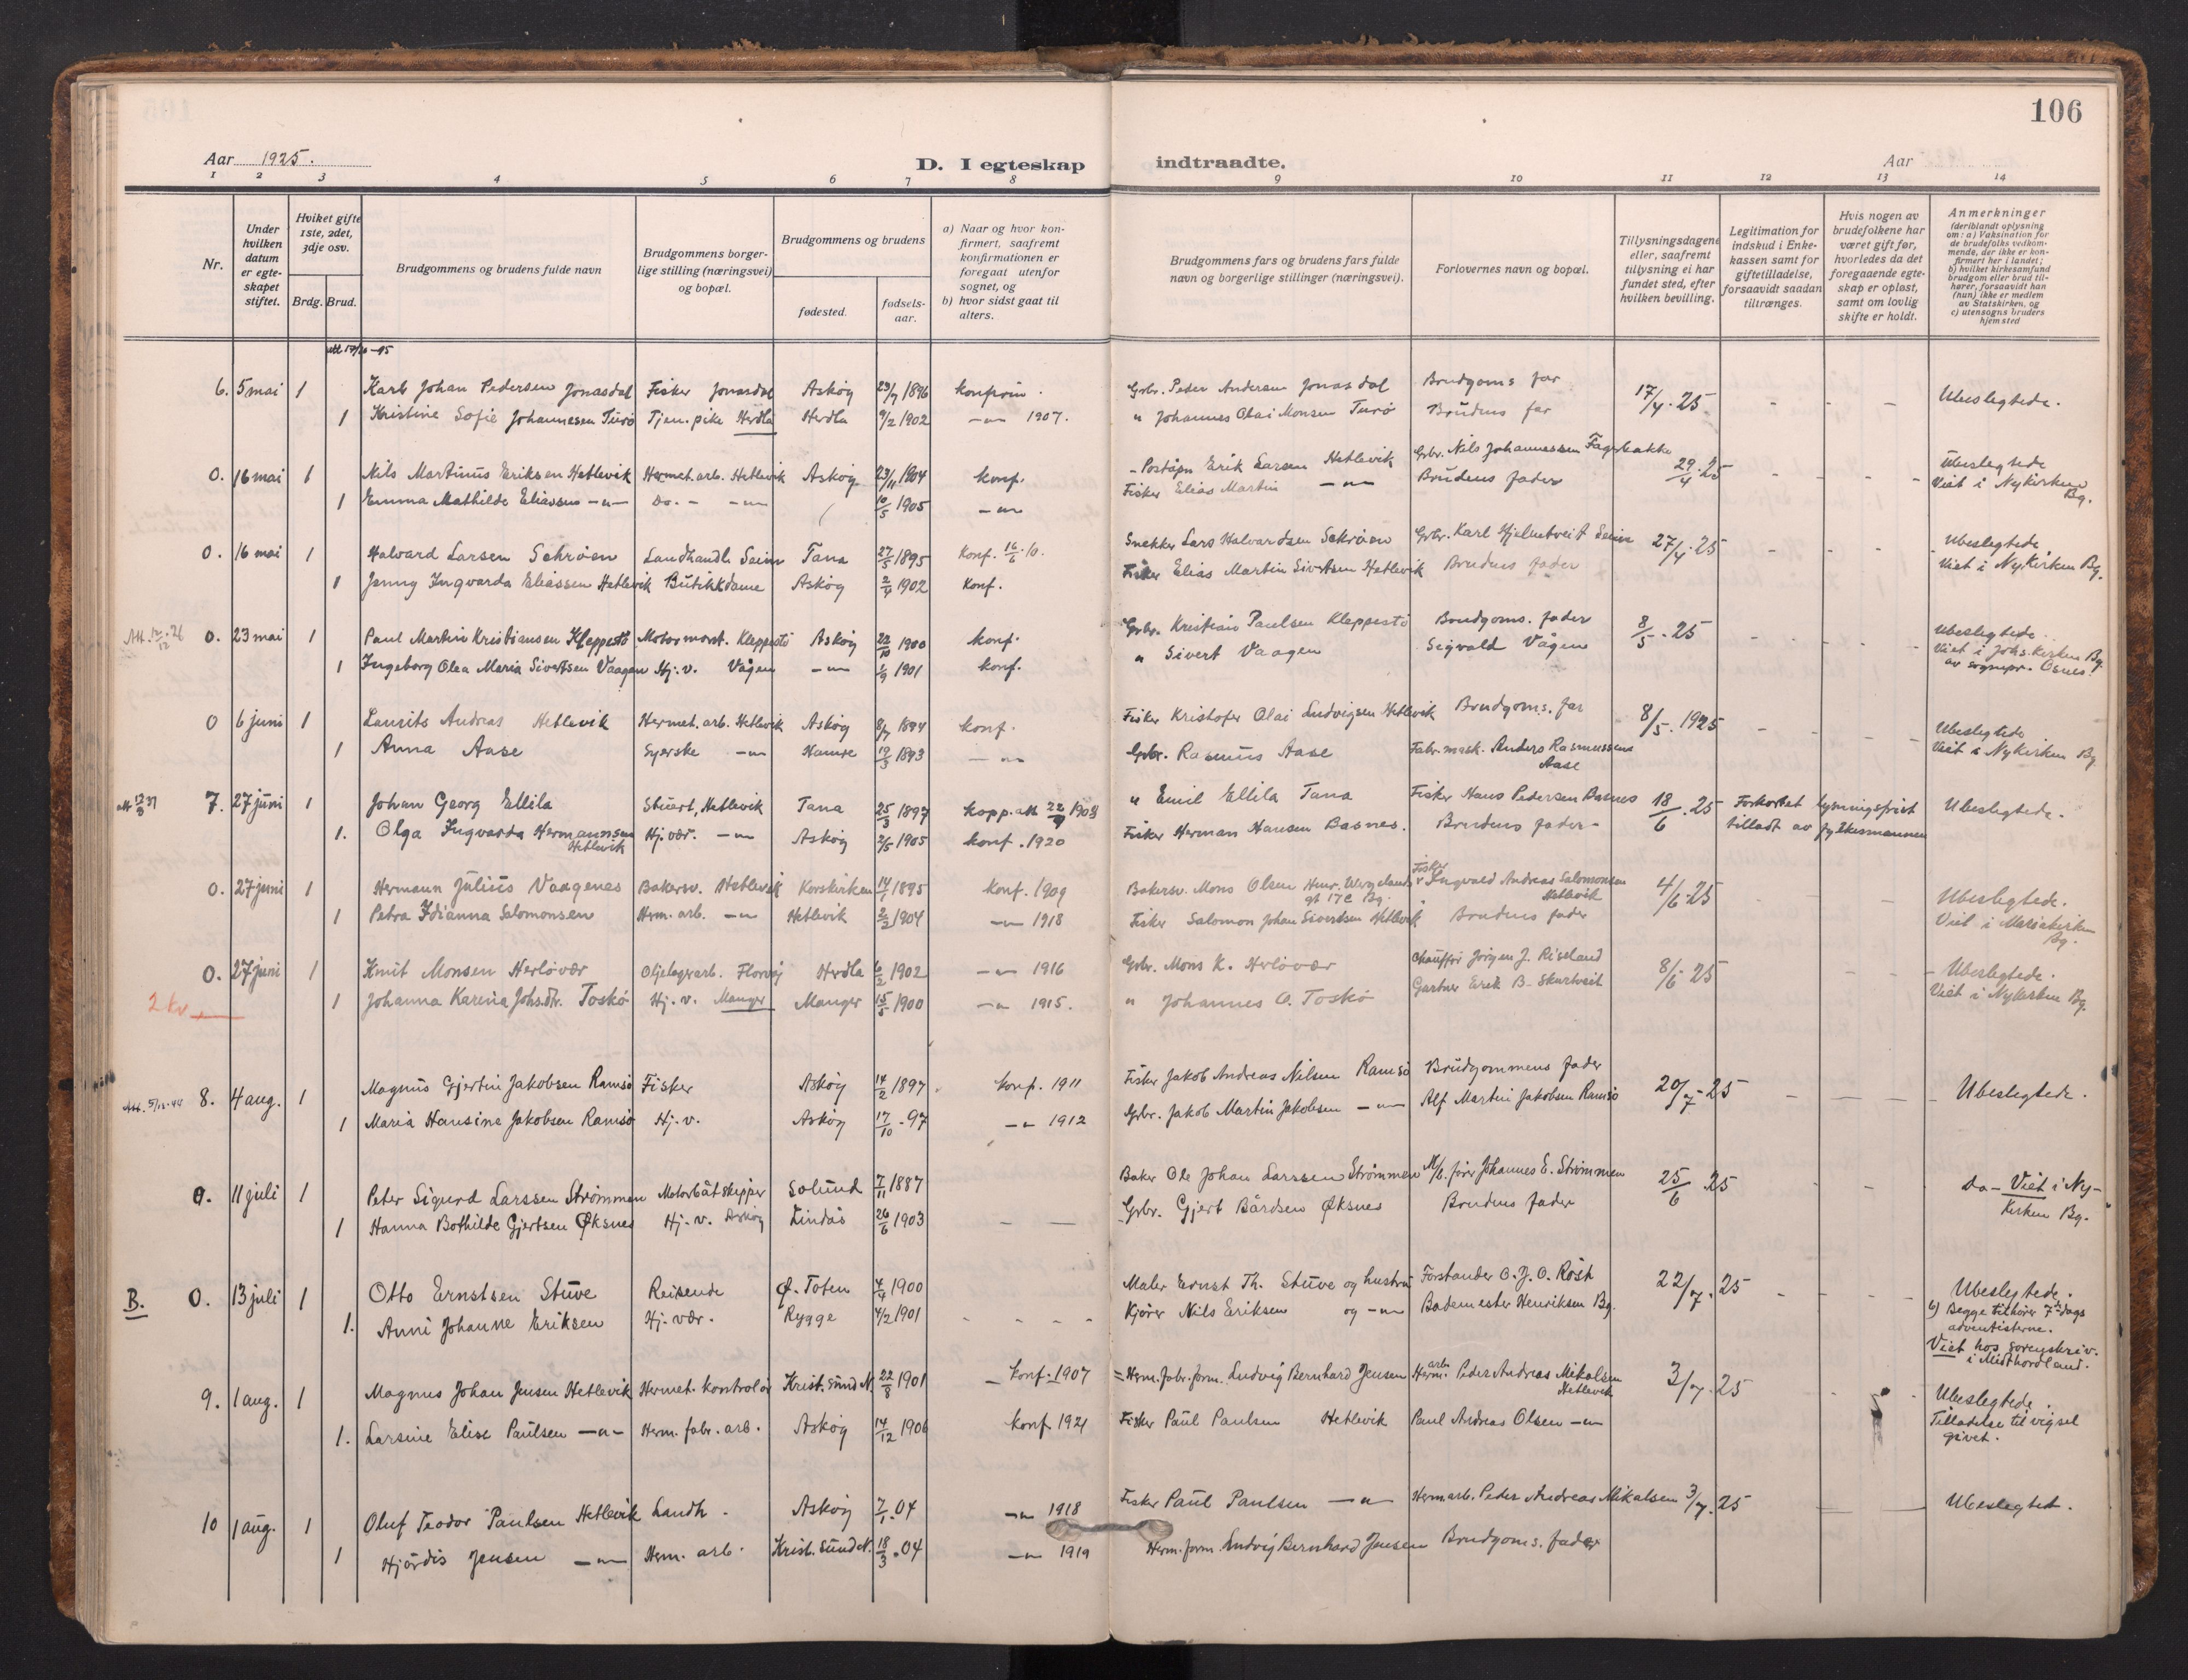 106
Aar 1925.
D. I egteskap indtraadte.
Aar
1 2 3 4 5 6 7 8 9 10 11 12 13 14
Nr.
Under hvilken datum er egteskapet stiftet.
Hviket gifte 1ste, 2det, 3dje osv.
Brdg. Brud.
Brudgommens og brudens fulde navn
Brudgommens borgerlige stilling (næringsvei) og bopæl.
Brudgommens og brudens
fødested.
fødselsaar.
a) Naar og hvor konfirmert, saafremt konfirmationen er foregaat utenfor sognet, og
b) hvor sidst gaat til alters.
Brudgommens fars og brudens fars fulde navn og borgerlige stillinger (næringsvei).
Forlovernes navn og bopæl.
Tillysningsdagene eller, saafremt tillysning ei har fundet sted, efter hvilken bevilling.
Legitimation for indskud i Enkekassen samt for giftetilladelse, forsaavidt saadan tiltrænges.
Hvis nogen av brudefolkene har været gift før, hvorledes da det foregaaende egteskap er opløst, samt om lovlig skifte er holdt.
Anmerkninger (deriblandt oplysning om: a) Vaksination for de brudefolks vedkommende, der ikke er konfirmert her i landet; b) hvilket kirkesamfund brudgom eller brud tilhører, forsaavidt han (hun) ikke er medlem av Statskirken, og c) utensogns bruders hjemsted
6. 5 mai 1 Karl Johan Pedersen Jonasdal Fisker Jonasdal Askøy 23/7 1896 konfirm. Grbr. Peder Andersen Jonasdal Brudgoms far 17/4. 25 - - - Ubeslegtede.
1 Kristine Sofie Johannesen Turø Tjen.pike Herdla Herdla 9/2 1902 -"- 1907. " Johannes Olai Monsen Turø Brudens far
0. 16 mai 1 Nils Martinus Eriksen Hetlevik Hermet.arb. Hetlevik Askøy 23/11 1904 konf. Poståpn Erik Larsen Hetlevik Grbr. Nils Johannessen Fagerbakke 29/4. 25 Ubeslegtede
1 Emma Mathilde Eliassen -"- Do. - -"- 10/5 1905 -"- Fisker Elias Martin -"- Brudens fader Viet i Nykirken Bg.
0. 16 mai 1 Halvard Larsen Schrøen Landhandl. Seim Tana 27/5 1895 Konf. 16/6. 10. Snekker Lars Halvardsen Schrøen Grbr. Karl Hjelmtveit Seim 27/4. 25 Ubeslegtede
1 Jenny Ingvarda Eliassen Hetlevik Butikkdame Askøy 2/4 1902 Konf. Fisker Elias Martin Sivertsen Hetlevik Brudens fader Viet i Nykirken Bg.
Att. 12/12. 26 0. 23 mai 1 Paul Martin Kristiansen Kleppestø Motormont. Kleppestø Askøy 22/10 1900 konf. Grbr. Kristian Paulsen Kleppestø Brudgoms. fader 8/5. 25 Ubeslegtede.
1 Ingeborg Olea Maria Sivertsen Vaagen Hj. v. Vågen -"- 1/9 1901 konf. " Sivert Vaagen Sigvald Vågen Viet i Johs.kirken Bg. av sognepr. Osnes.
0 6 juni 1 Laurits Andreas Hetlevik Hermet. arb. Hetlevik Askøy 8/7 1894 konf. Fisker Kristofer Olai Ludvigsen Hetlevik Brudgoms. far 8/5. 1925 Ubeslegtede
1 Anna Aase Syerske -"- Hamre 19/3 1893 -"- Grbr. Rasmus Aase Fabr.mask. Anders Rasmussen Aase Viet i Nykirken Bg
7. 27 juni 1 Johan Georg Ellila Stuert, Hetlevik Tana 25/3 1897 kopp.att " Emil Ellila Tana Fisker Hans Pedersen Basnes 18/6. 25 Forkortet lysningsfrist Ubeslegtede.
1. Olga Ingvarda Hermannsen Hetlevik Hj.vær. -"- Askøy 2/5 1905 konf. 1920 Fisker Herman Hansen Basnes. Brudens fader tilladt av fylkesmannen
0. 27 juni 1 Hermann Julius Vaagenes Bakersv. Hetlevik Korskirken 14/7 1895 konf. 1909 Bakersv. Mons Olsen Henr. Wergelands gt 17e Bg. Fisker Ingvald Andreas Salomonsen Hetlevik 4/6. 25 Ubeslegtede.
1 Petra Idianna Salomonsen Herm. arb. -"- Hetlevik 2/2 1904 -"- 1918 Fisker Salomon Johan Sivertsen Hetlevik Brudens fader Viet i Mariakirken Bg.
0. 27 juni 1 Knut Monsen Herløvær Oljelagerarb. Florvåg Herdla 6/2 1902 -"- 1916 Grbr. Mons K. Herløvær Chauffør Jørgen J. Riseland 8/6 - 25 Ubeslegtede.
2 kr. 1 Johanna Karina Johs.dtr. Toskø Hj. v. Manger Manger 15/5 1900 -"- 1915. " Johannes O. Toskø Gartner Erik B. Skurtveit Viet i Nykirken Bg.
8. 4 aug. 1 Magnus Gjertin Jakobsen Ramsø Fisker Askøy 14/2 1897 konf. 1911 Fisker Jakob Andreas Nilsen Ramsø Brudgommens fader 20/7 - 25 Ubeslegtede.
1 Maria Hansine Jakobsen Ramsø Hj. v. Askøy 17/10 - 97 -"- 1912 Grbr. Jakob Martin Jakobsen -"- Alf Martin Jakobsen Ramsø
0. 11 juli 1 Peter Sigurd Larssen Strømmen Motorbåtskipper Solund 7/11 1887 Baker Ole Johan Larssen Strømmen M/b. fører Johannes E. Strømmen 25/6. 25 Do - Viet i Ny-
1 Hanna Bothilde Gjertsen Øksnes Hj. v. Askøy Lindås 26/6 1903 - - Grbr. Gjert Bårdsen Øksnes Brudens fader kirken Bg.
B. 0. 13 juli 1 Otto Ernstsen Stuve Reisende Ø. Toten 4/4 1900 Maler Ernst Th. Stuve og hustru Forstander O. J. O. Røst 22/7. 25 Ubeslegtede.
1. Anni Johanne Eriksen Hj. vær. Rygge 4/2 1901 Kjører Nils Eriksen og -"- Bademester Henriksen Bg. b) Begge tilhører 7de dags adventisterne.
Viet hos sorenskriv. i Midthordland.
9. 1 aug. 1 Magnus Johan Jensen Hetlevik Hermet. kontrolør Krist.sund N. 22/8 1901 konf. 1907 Herm. fabr. form. Ludvig Bernhard Jensen Herm.arb. Peder Andreas Mikalsen Hetlevik 3/7. 25 Ubeslegtede.
1. Larsine Elise Paulsen -"- Herm. fabr. arb. Askøy 14/12 1906 konf. 1921 Fisker Paul Paulsen Hetlevik Paul Andreas Olsen -"- Tilladelse til vigsel givet.
10 1 aug. 1 Oluf Teodor Paulsen Hetlevik Landh. Askøy 7/1. 04 -"- 1918 Fisker Paul Paulsen -"- Hermarb. Peder Andreas Mikalsen 3/7. 25 Ubeslegtet.
1 Hjørdis Jensen -"- Herm. arb. Krist.sund N. 18/3. 04 -"- 1919 Herm. form. Ludvig Bernhard Jensen Brudgoms. fader